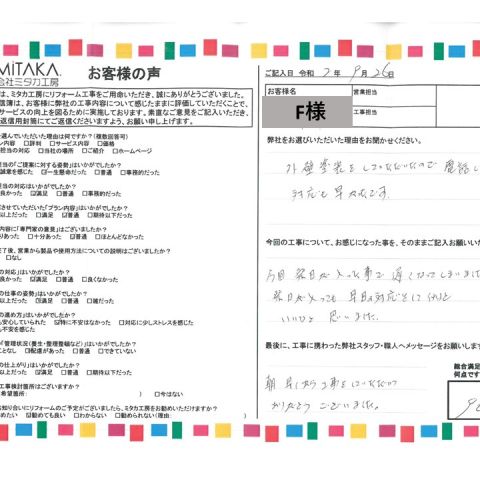 MiTAKA
会社ミタカ工房
お客様の声
は、ミタカ工房にリフォーム工事をご用命いただき、誠にありがとうございました。
信簿は、お客様に弊社の工事内容について感じたままに評価していただくことで、
サービスの向上を図るために実施しております。素直なご意見をご記入いただき、
返信用封筒にてご返信くださいますよう、お願い申し上げます。
選んでいただいた理由は何ですか？(複数回答可)
ン内容 □評判 □サービス内容 □価格
担当の対応 □当社の場所 □ご紹介 □ホームページ
担当の「ご提案に対する姿勢」はいかがでしたか？
誠意を感じた ☑一生懸命だった □普通 □事務的だった
担当の対応はいかがでしたか？
良かった ☑満足 □普通 □事務的だった
させていただいた「プラン内容」はいかがでしたか？
以上だった □満足 □普通 □期待以下だった
内容に「専門家の意見」はございましたか？
りあった □十分あった □普通 □ほとんどなかった
完了後、営業から製品や使用方法についての説明はございましたか？
□なし
の対応」はいかがでしたか？
良かった ☑満足 □普通 □良くなかった
の仕事の姿勢」はいかがでしたか？
以上だった ☑満足 □普通 □雑だった
の進め方」はいかがでしたか？
も安心していられた ☑特に不安はなかった □対応に少しストレスを感じた
も不安を感じた
「管理状況(養生・整理整頓など)」はいかがでしたか？
ことなし □配慮があった □普通 □できていない
の仕上がり」はいかがでしたか？
以上だった ☑満足 □普通 □期待以下だった
工事検討箇所はございますか？
希望箇所： ) □今はない
お知り合いにリフォームのご予定がございましたら、ミタカ工房をお勧めいただけますか？
めたい ☑勧めても良い □わからない □勧められない(理由：
ご記入日 令和 2 年 9 月 26 日
お客様名
F様
営業担当
工事担当
弊社をお選びいただいた理由をお聞かせください。
対応も早かったです。
今回の工事について、お感じになった事を、そのままご記入お願いいた
いいなと思いました。
最後に、工事に携わった弊社スタッフ・職人へメッセージをお願いします
朝早くから工事をしていただいて
ありがとうございました。
総合満足
何点です